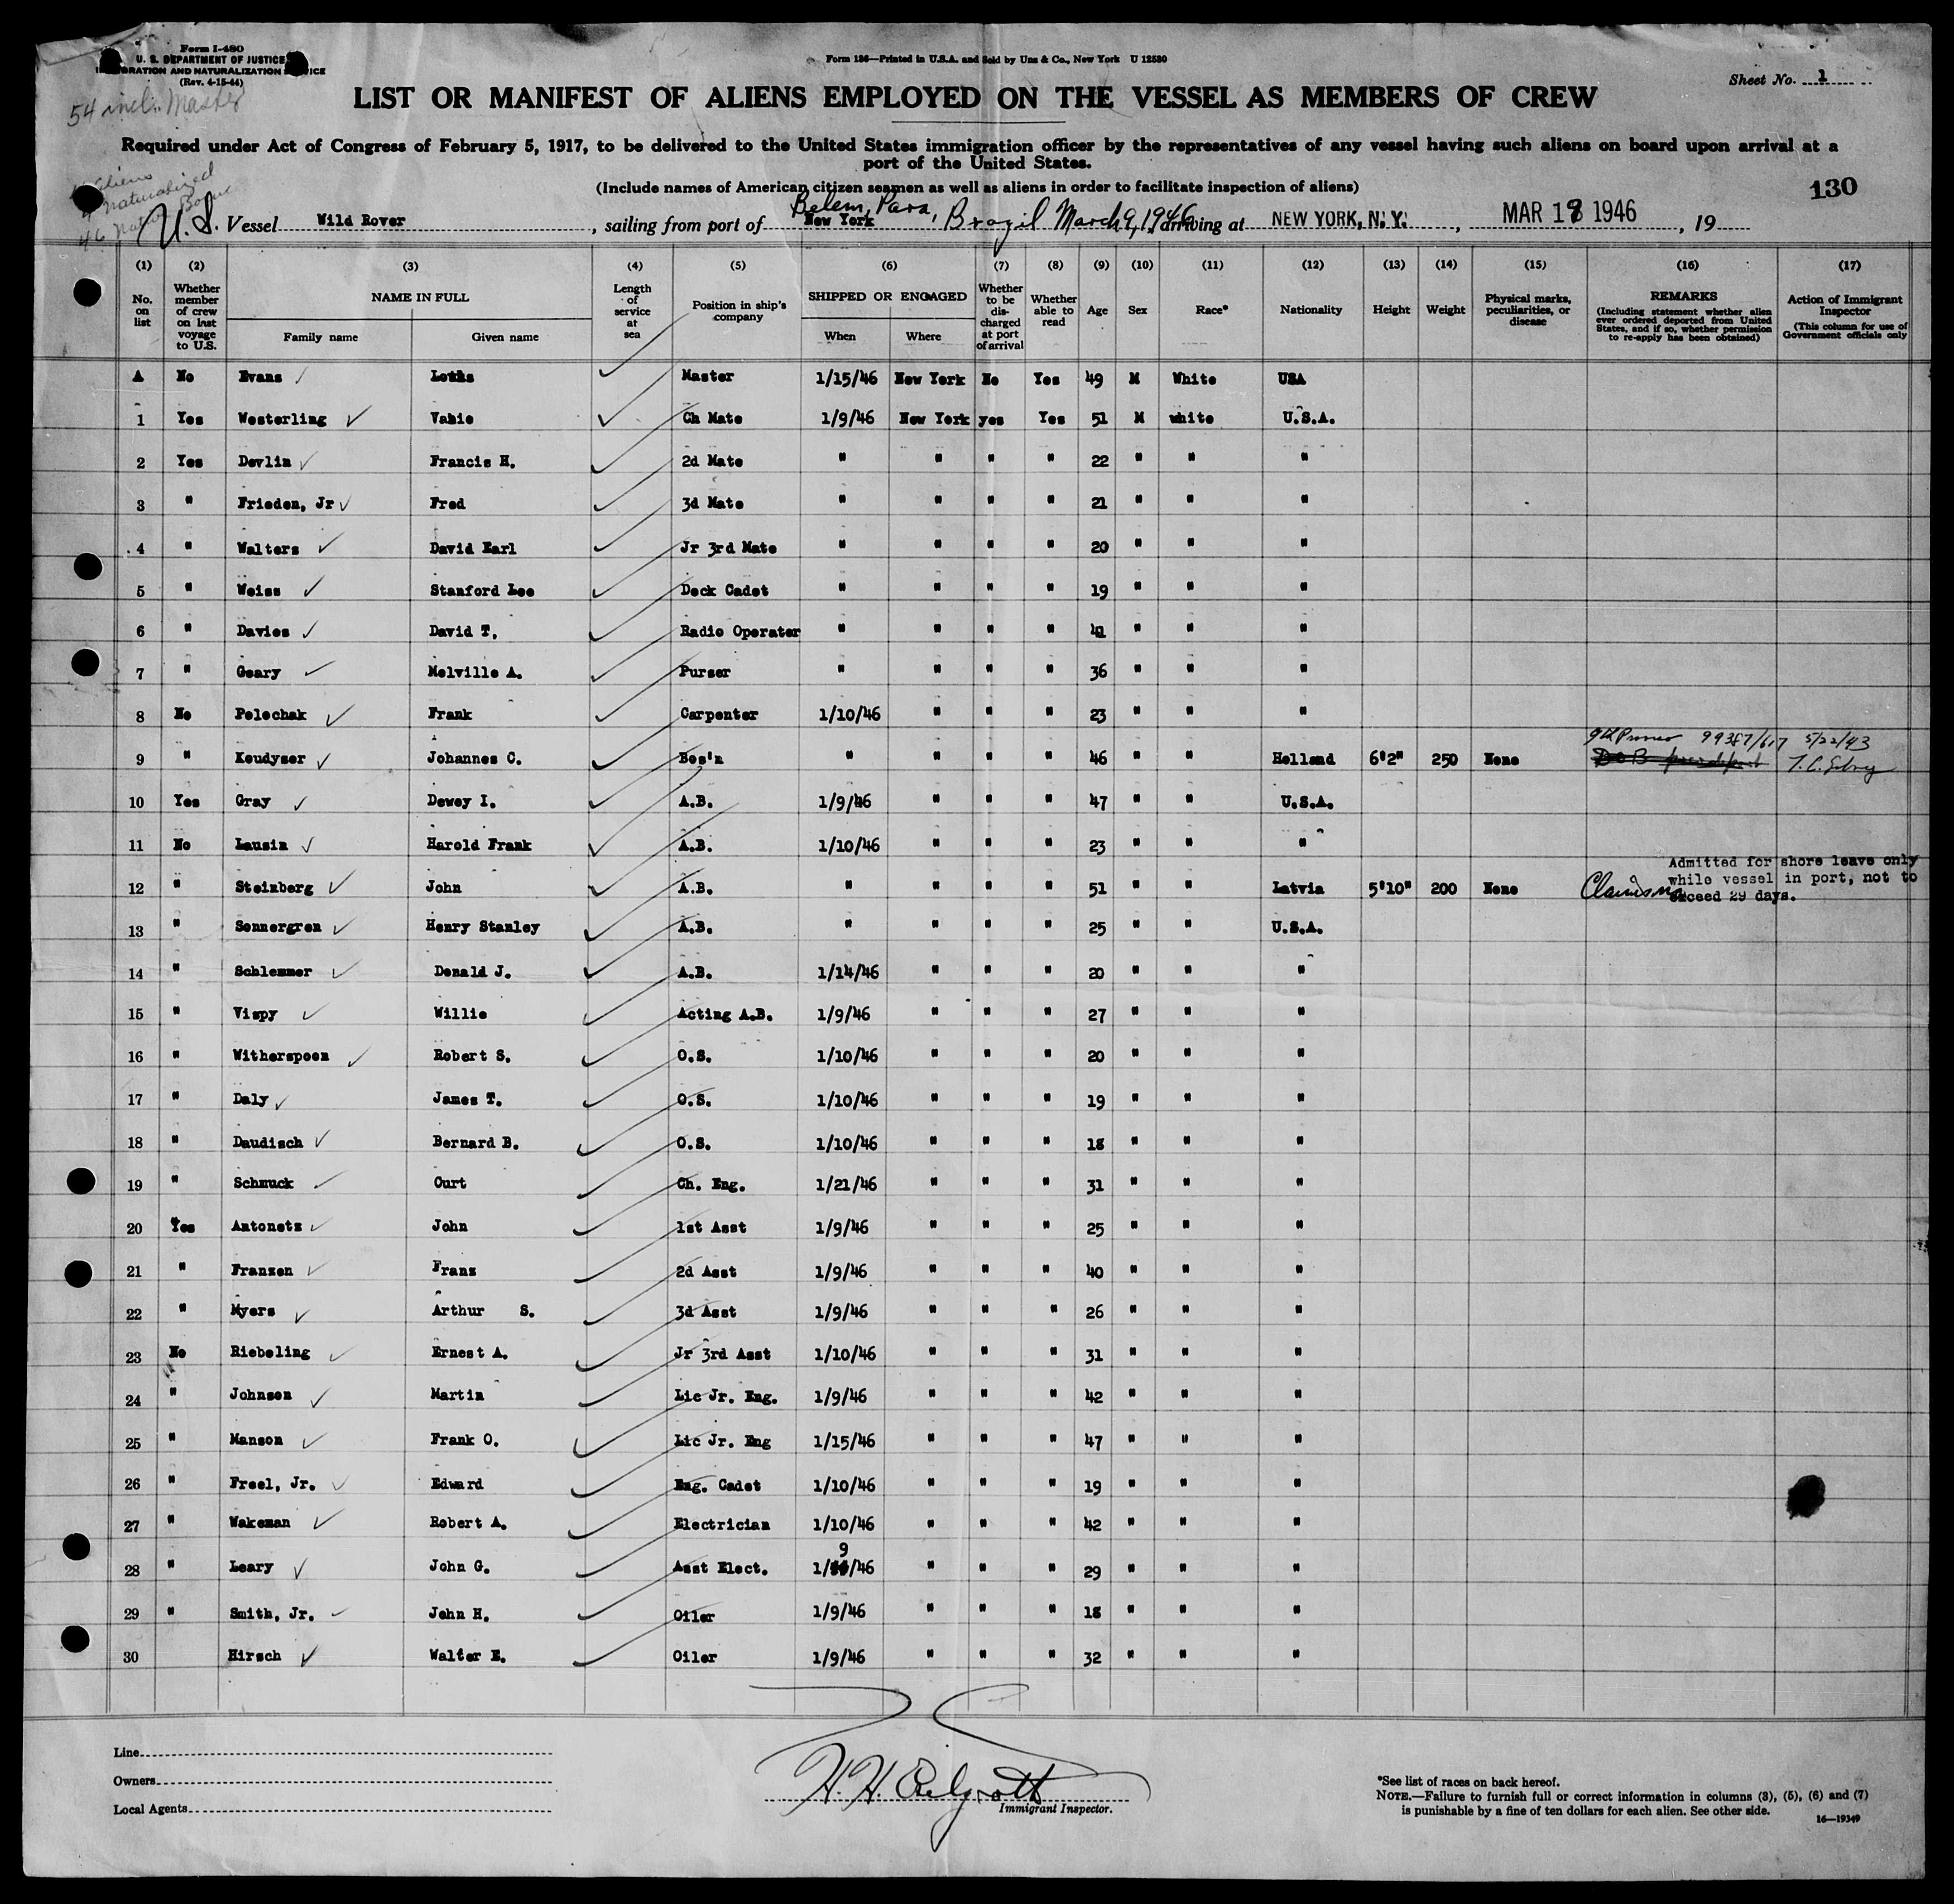 Form I-480
U. S. DEPARTMENT OF JUSTICE
IMMIGRATION AND NATURALIZATION SERVICE
(Rev. 4-15-44)
54 incl. Master
Form 186—Printed in U.S.A. and Sold by Unz & Co., New York U 12580
Sheet No. 1
LIST OR MANIFEST OF ALIENS EMPLOYED ON THE VESSEL AS MEMBERS OF CREW
Required under Act of Congress of February 5, 1917, to be delivered to the United States immigration officer by the representatives of any vessel having such aliens on board upon arrival at a
port of the United States.
(Include names of American citizen seamen as well as aliens in order to facilitate inspection of aliens)
130
Aliens
Naturalized
46 Native Born
Belem, Para, Brazil March 9, 1946
U.S. Vessel Wild Rover, sailing from port of New York, arriving at NEW YORK, N.Y., MAR 18 1946, 19
(1) (2) (3) (4) (5) (6) (7) (8) (9) (10) (11) (12) (13) (14) (15) (16) (17)
No. on list
Whether member of crew on last voyage to U.S.
NAME IN FULL
Family name
Given name
Length of service at sea
Position in ship's company
SHIPPED OR ENGAGED
When
Where
Whether to be discharged at port of arrival
Whether able to read
Age
Sex
Race*
Nationality
Height
Weight
Physical marks, peculiarities, or disease
REMARKS
(Including statement whether alien ever ordered deported from United States, and if so, whether permission to re-apply has been obtained)
Action of Immigrant Inspector
(This column for use of Government officials only)
A No Evans Master 1/15/46 New York No Yes 49 M White USA
1 Yes Westerling Vahie Ch Mate 1/9/46 New York yes Yes 51 M white U.S.A.
2 Yes Devlin Francis H. 2d Mate " " " " 22 " " "
3 " Frieden, Jr Fred 3d Mate " " " " 21 " " "
4 " Walters David Earl Jr 3rd Mate " " " " 20 " " "
5 " Weiss Stanford Lee Deck Cadet " " " " 19 " " "
6 " Davies David T. Radio Operator " " " " 41 " " "
7 " Geary Melville A. Purser " " " " 36 " " "
8 No Polochak Frank Carpenter 1/10/46 " " " 23 " " "
9 " Keudyser Johannes C. Bos'n " " " " 46 " " Holland 6'2" 250 None 99387/617 5/22/43
10 Yes Gray Dewey I. A.B. 1/9/46 " " " 47 " " U.S.A.
11 No Lausin Harold Frank A.B. 1/10/46 " " " 23 " " "
12 " Steinberg John A.B. " " " " 51 " " Latvia 5'10" 200 None Admitted for shore leave only while vessel in port, not to exceed 29 days.
13 " Sonnergren Henry Stanley A.B. " " " " 25 " " U.S.A.
14 " Schlemmer Donald J. A.B. 1/14/46 " " " 20 " " "
15 " Vispy Willie Acting A.B. 1/9/46 " " " 27 " " "
16 " Witherspoon Robert S. O.S. 1/10/46 " " " 20 " " "
17 " Daly James T. O.S. 1/10/46 " " " 19 " " "
18 " Daudisch Bernard B. O.S. 1/10/46 " " " 18 " " "
19 " Schmuck Curt Ch. Eng. 1/21/46 " " " 31 " " "
20 Yes Antonetz John 1st Asst 1/9/46 " " " 25 " " "
21 " Franzen Franz 2d Asst 1/9/46 " " " 40 " " "
22 " Myers Arthur S. 3d Asst 1/9/46 " " " 26 " " "
23 No Riebeling Ernest A. Jr 3rd Asst 1/10/46 " " " 31 " " "
24 " Johnsen Martin Lic Jr. Eng. 1/9/46 " " " 42 " " "
25 " Manson Frank O. Lic Jr. Eng 1/15/46 " " " 47 " " "
26 " Freel, Jr. Edward Eng. Cadet 1/10/46 " " " 19 " " "
27 " Wakeman Robert A. Electrician 1/10/46 " " " 42 " " "
28 " Leary John G. Asst Elect. 1/9/46 " " " 29 " " "
29 " Smith, Jr. John H. Oiler 1/9/46 " " " 18 " " "
30 Hirsch Walter E. Oiler 1/9/46 " " " 32 " " "
Line
Owners
Local Agents
Immigrant Inspector.
*See list of races on back hereof.
NOTE.—Failure to furnish full or correct information in columns (3), (5), (6) and (7)
is punishable by a fine of ten dollars for each alien. See other side.
16—19349